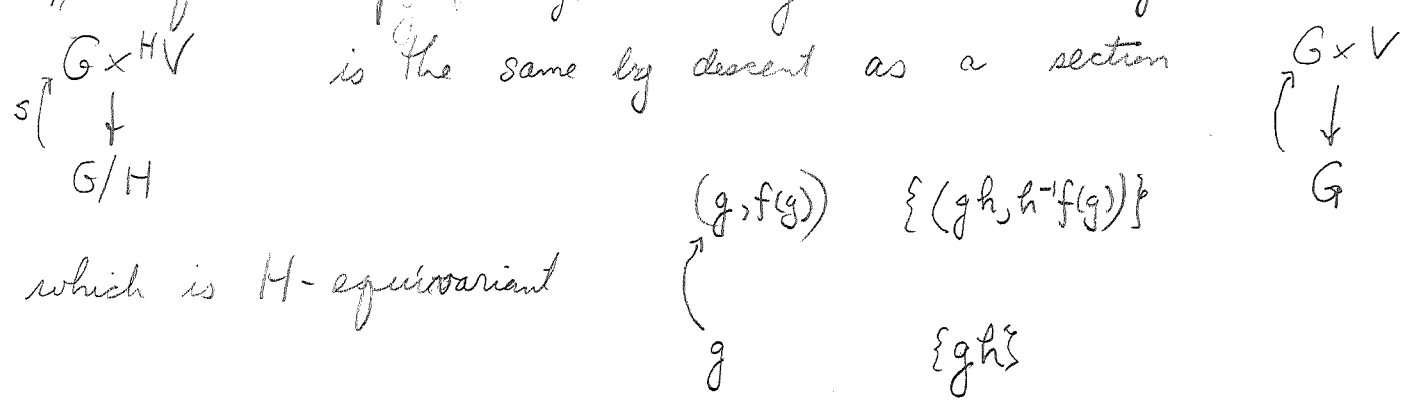 G ×ᴴ V is the same by descent as a section G × V
s ↓ ↓
G/H G
(g, f(g)) {(gh, h⁻¹f(g))}
which is H-equivariant
g {gh}